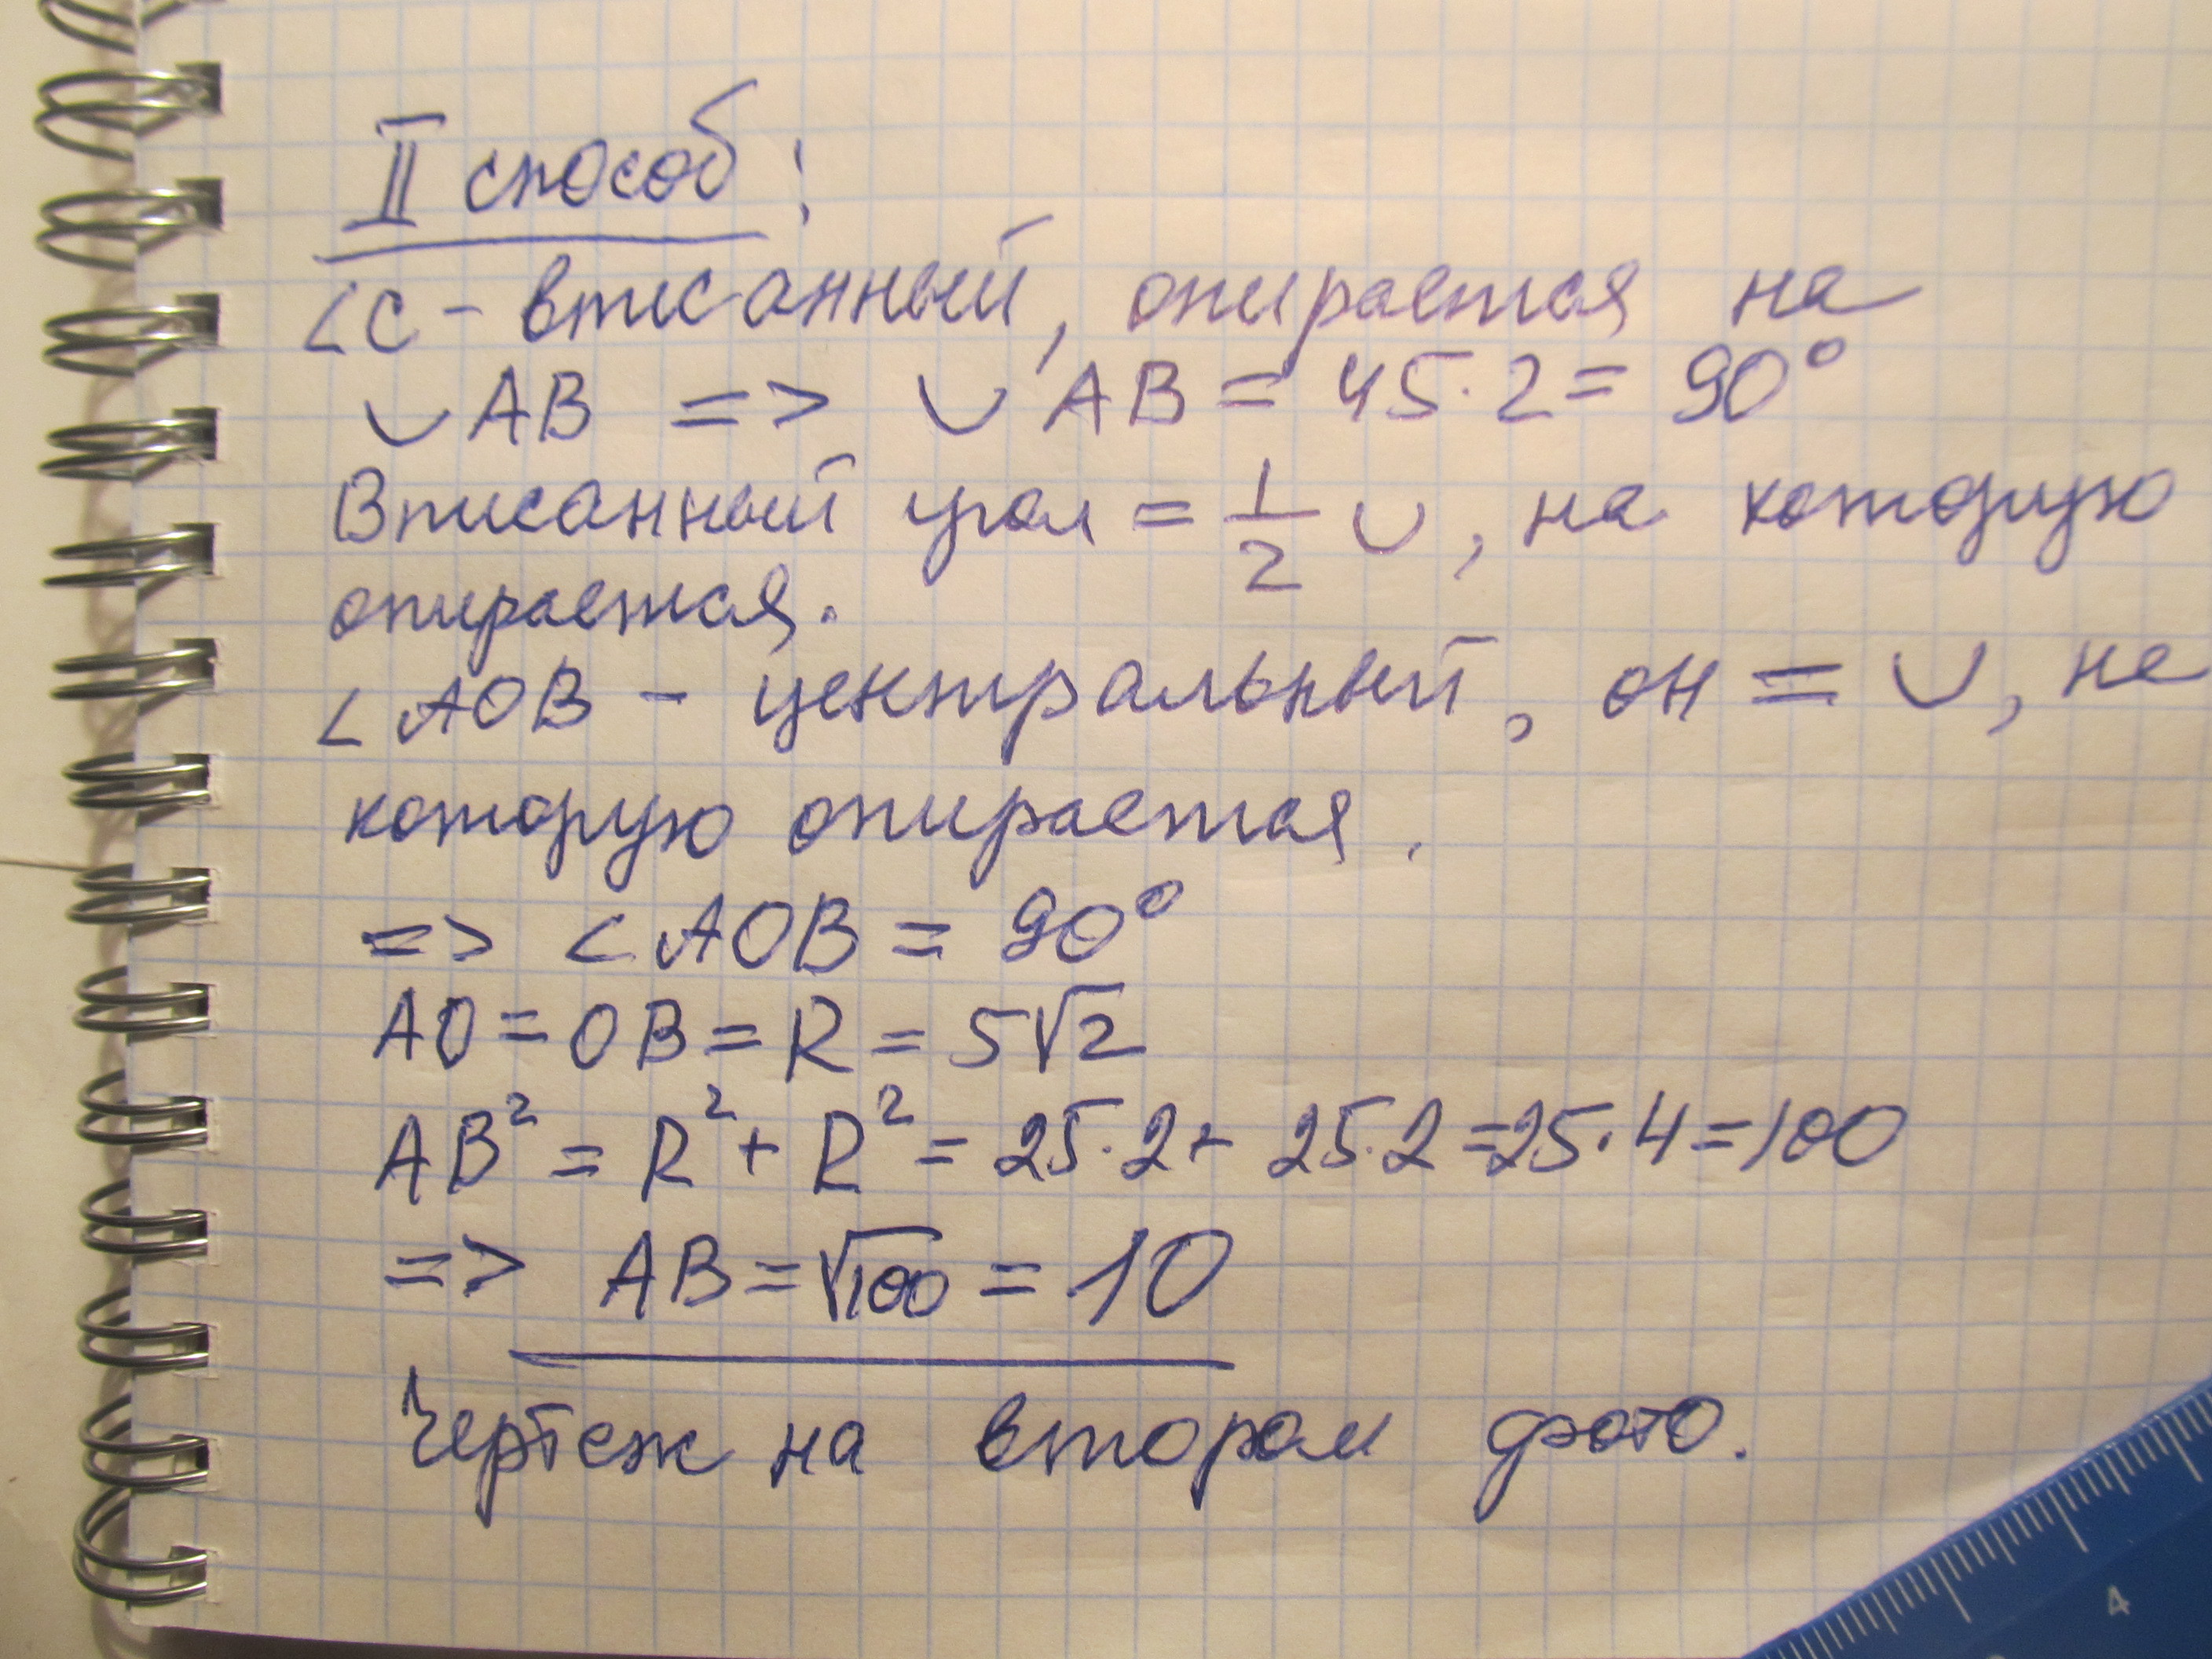 II способ:
<C - вписанный, опирается на
◡AB => ◡AB = 45·2 = 90°
Вписанный угол = 1/2 ◡, на которую
опирается.
<AOB - центральный, он = ◡, на
которую опирается.
=> <AOB = 90°
AO = OB = R = 5√2
AB² = R² + R² = 25·2 + 25·2 = 25·4 = 100
=> AB = √100 = 10
Чертеж на втором фото.
4